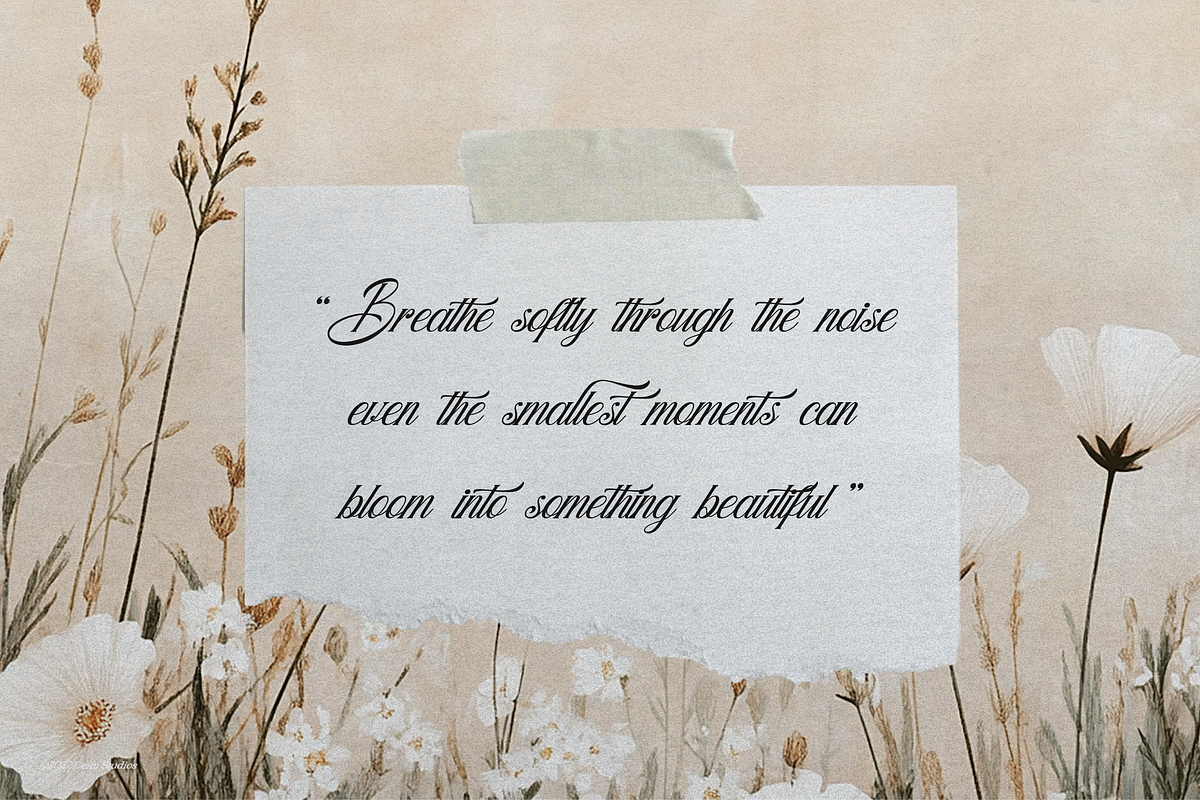 “ Breathe softly through the noise
even the smallest moments can
bloom into something beautiful ”
Studios